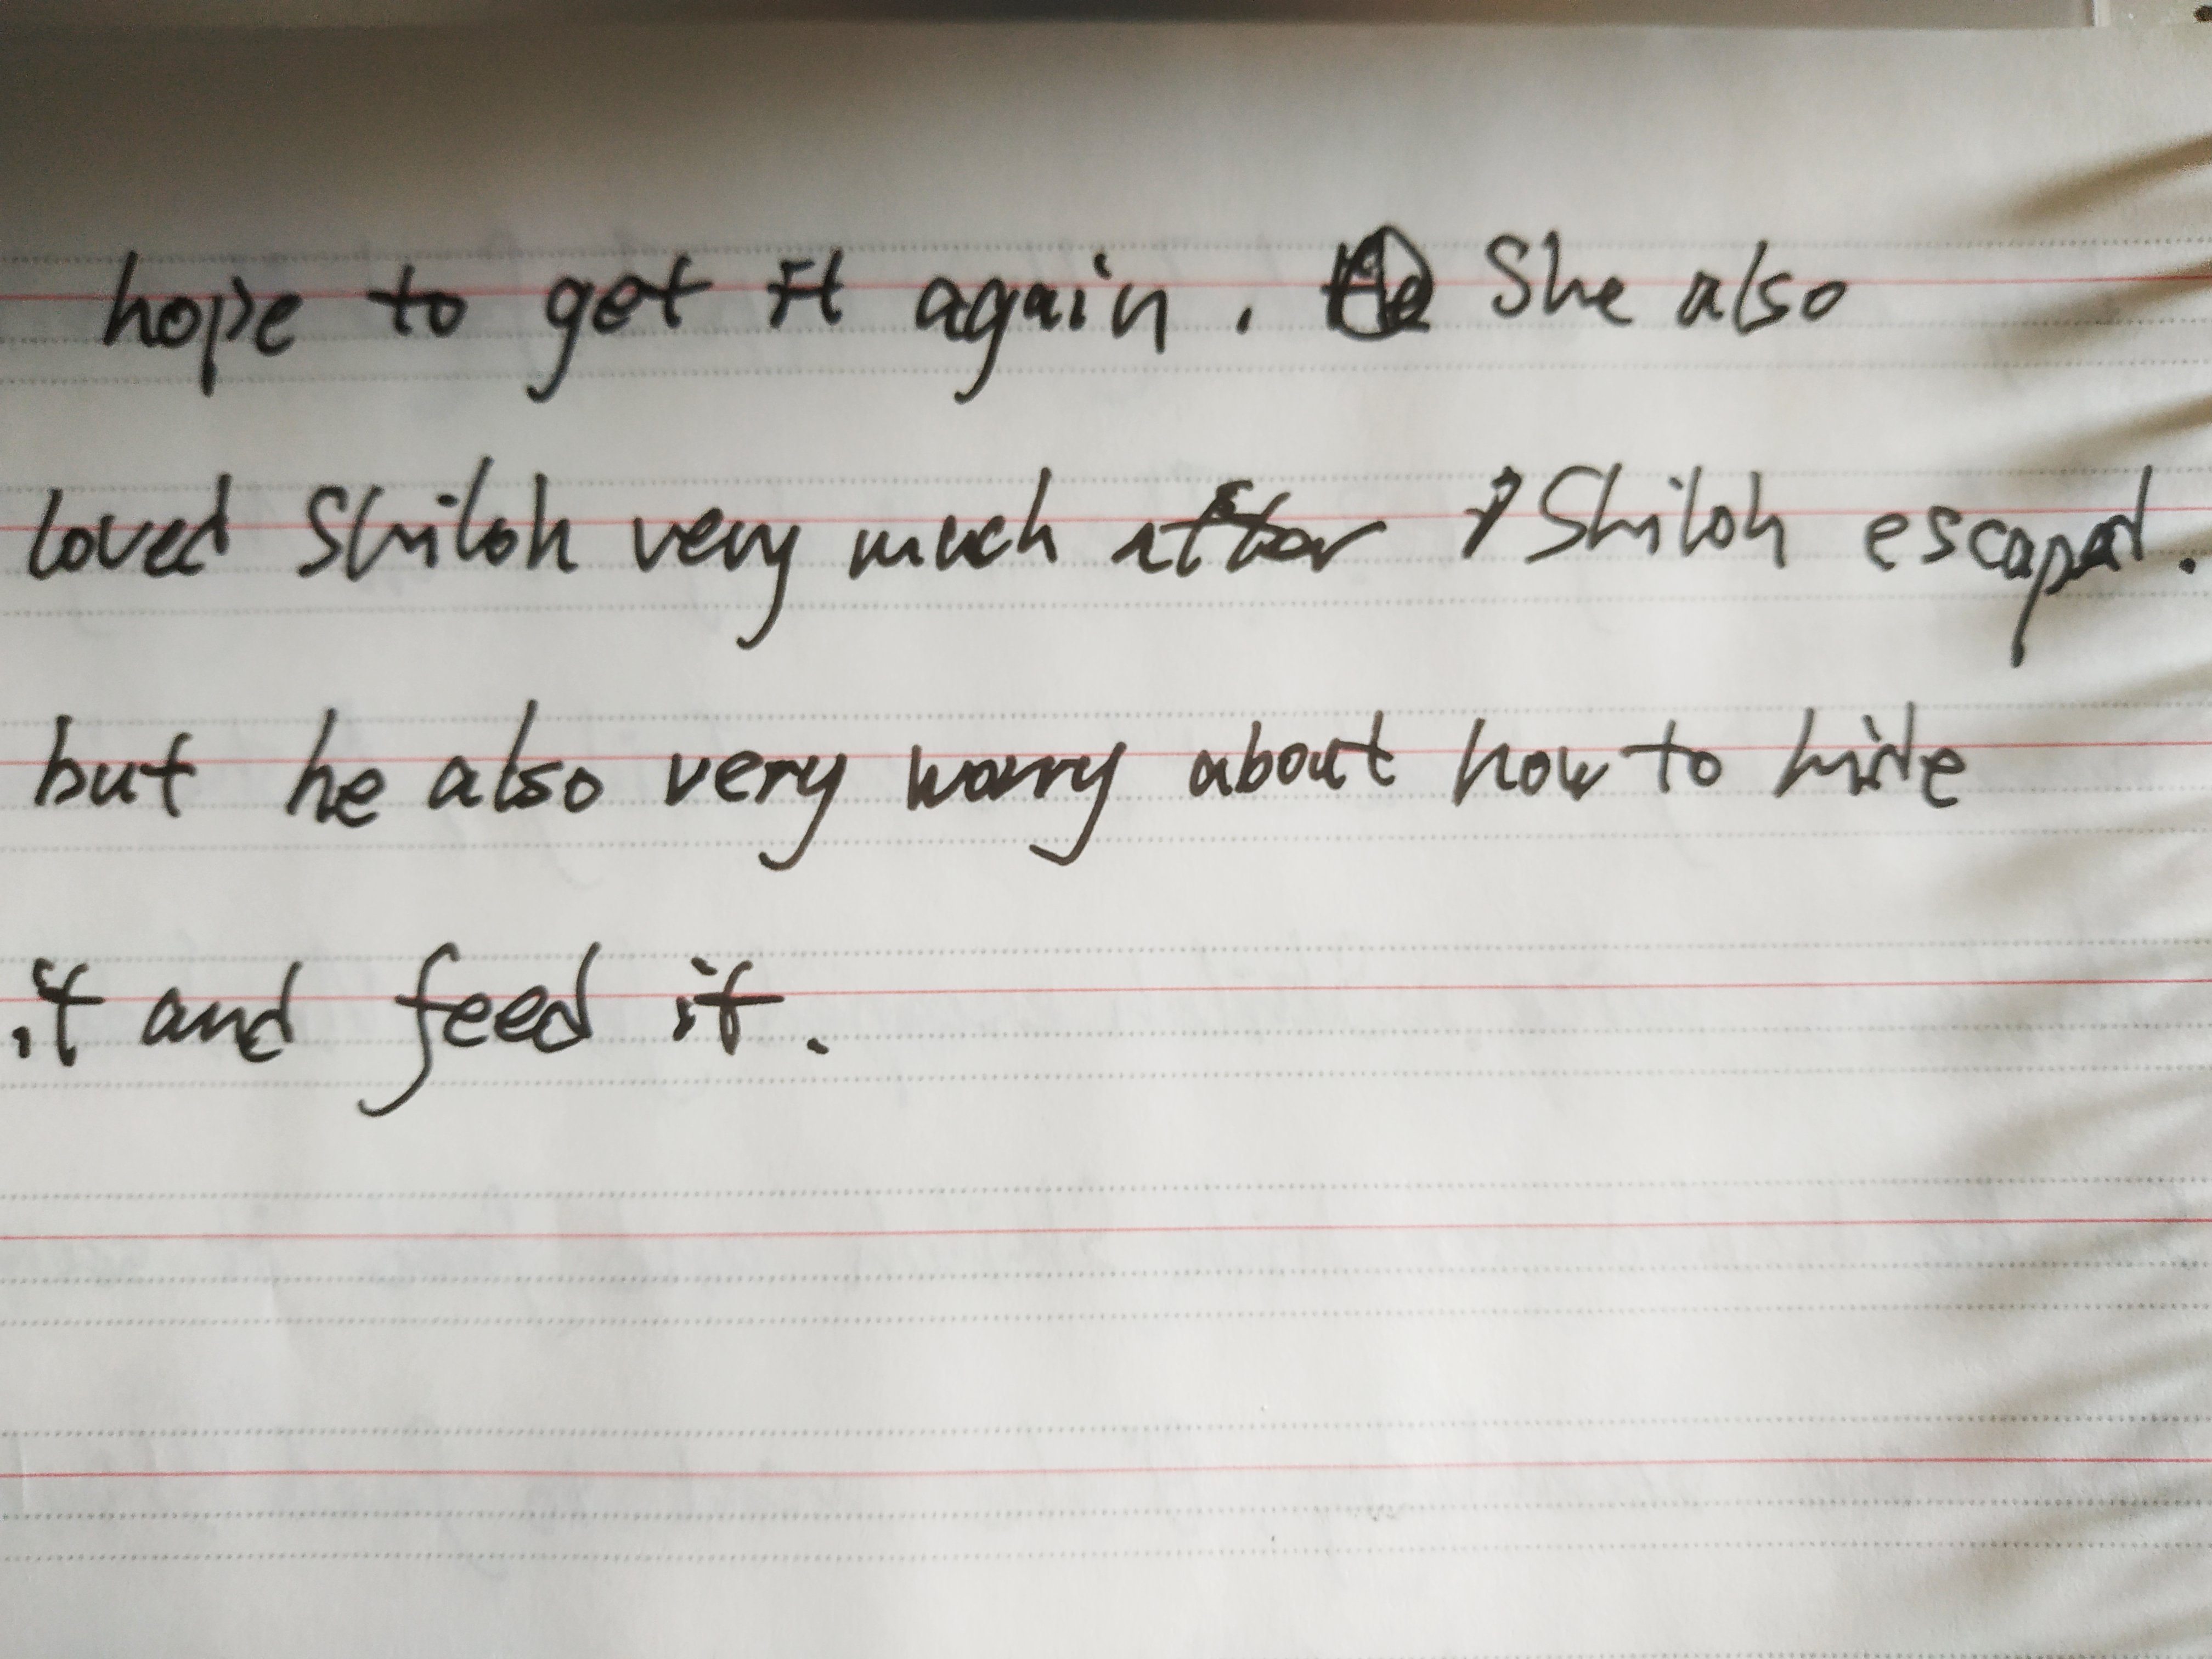 hope to get it again. She also
loved Shiloh very much after Shiloh escaped.
but he also very worry about how to hide
it and feed it.